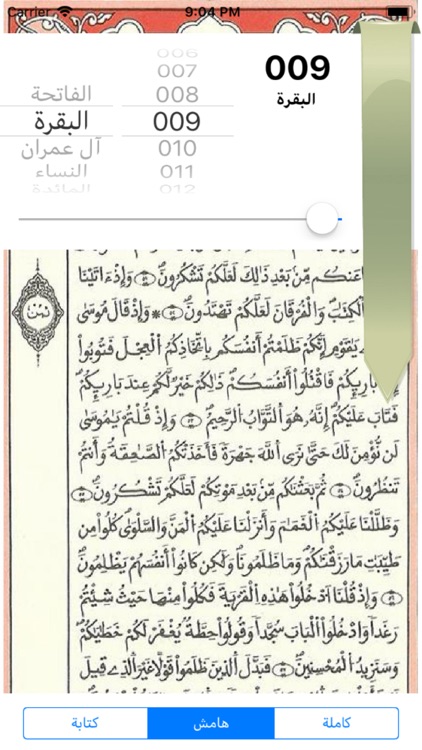 Carrier 9:04 PM
006
007
008
009
010
011
012
الفاتحة
البقرة
آل عمران
النساء
المائدة
009
البقرة
ثمن
عَنكُم مِّنۢ بَعْدِ ذَٰلِكَ لَعَلَّكُمْ تَشْكُرُونَ وَإِذَ اتَيْنَا
الْكِتَٰبَ وَالْفُرْقَانَ لَعَلَّكُمْ تَهْتَدُونَ * وَإِذْ قَالَ مُوسَىٰ
يَٰقَوْمِ إِنَّكُمْ ظَلَمْتُمْ أَنفُسَكُم بِاتِّخَاذِكُمُ الْعِجْلَ فَتُوبُوا
بَارِئِكُمْ فَاقْتُلُوا أَنفُسَكُمْ ذَٰلِكُمْ خَيْرٌ لَّكُمْ عِندَ بَارِئِكُمْ
فَتَابَ عَلَيْكُمْ إِنَّهُۥ هُوَ التَّوَّابُ الرَّحِيمُ وَإِذْ قُلْتُمْ يَٰمُوسَىٰ
لَن نُّؤْمِنَ لَكَ حَتَّىٰ نَرَى اللَّهَ جَهْرَةً فَأَخَذَتْكُمُ الصَّٰعِقَةُ وَأَنتُمْ
تَنظُرُونَ ثُمَّ بَعَثْنَٰكُم مِّنۢ بَعْدِ مَوْتِكُمْ لَعَلَّكُمْ تَشْكُرُونَ
وَظَلَّلْنَا عَلَيْكُمُ الْغَمَٰمَ وَأَنزَلْنَا عَلَيْكُمُ الْمَنَّ وَالسَّلْوَىٰ كُلُوا مِن
طَيِّبَٰتِ مَا رَزَقْنَٰكُمْ وَمَا ظَلَمُونَا وَلَٰكِن كَانُوا أَنفُسَهُمْ يَظْلِمُونَ
وَإِذْ قُلْنَا ادْخُلُوا هَٰذِهِ الْقَرْيَةَ فَكُلُوا مِنْهَا حَيْثُ شِئْتُمْ
رَغَدًا وَادْخُلُوا الْبَابَ سُجَّدًا وَقُولُوا حِطَّةٌ يُغْفَرْ لَكُمْ خَطَٰيَٰكُمْ
وَسَنَزِيدُ الْمُحْسِنِينَ فَبَدَّلَ الَّذِينَ ظَلَمُوا قَوْلًا غَيْرَ الَّذِي قِيلَ
كاملة
هامش
كتابة